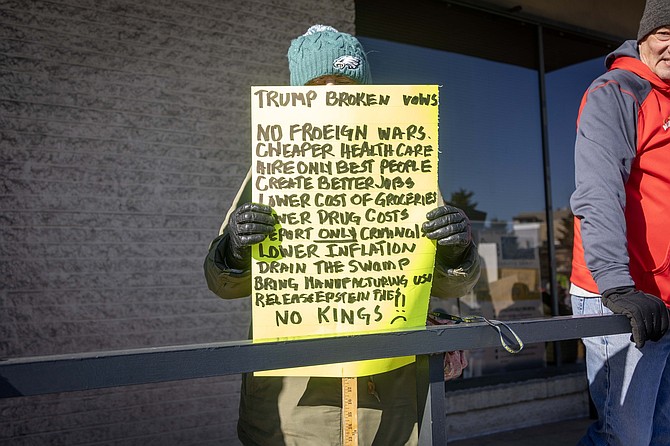 TRUMP BROKEN VOWS
NO FROEIGN WARS.
CHEAPER HEALTH CARE
HIRE ONLY BEST PEOPLE
CREATE BETTER JOBS
LOWER COST OF GROCERIES
LOWER DRUG COSTS
DEPORT ONLY CRIMINALS
LOWER INFLATION
DRAIN THE SWOMP
BRING MANUFACTURING USA
RELEASE EPSTEIN FILES!!
NO KINGS